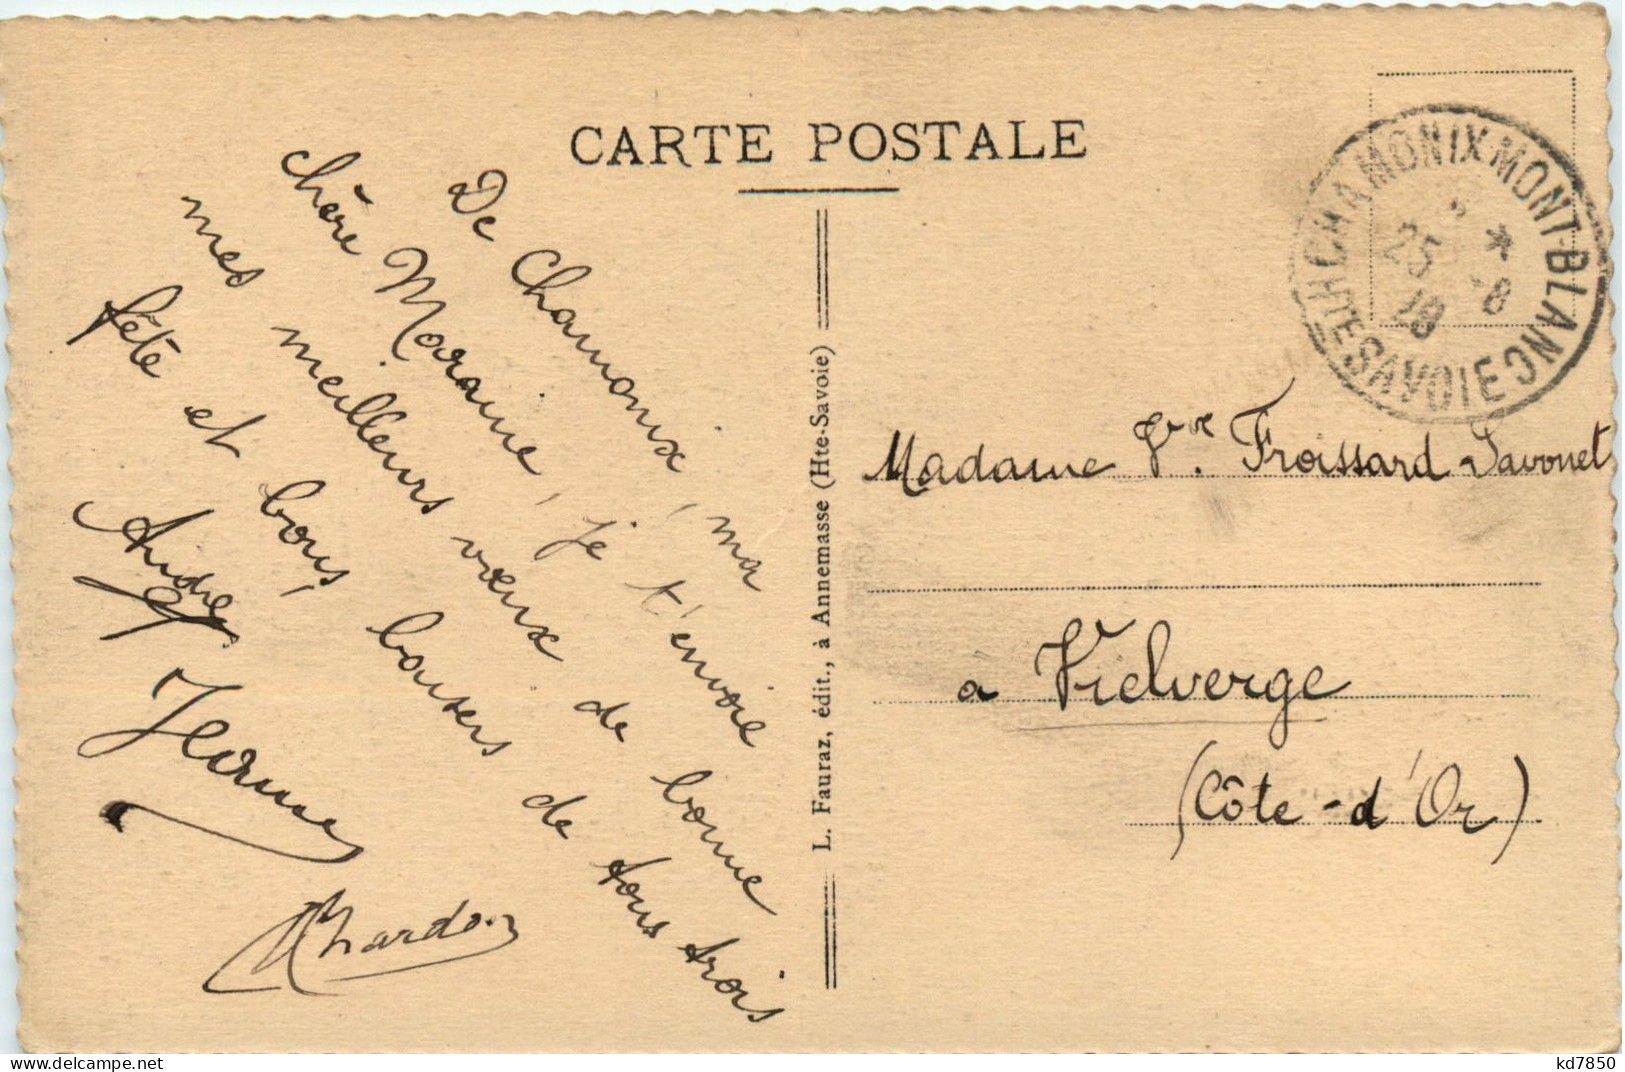 CARTE POSTALE
De Chamonix, ma
chère Marraine, je t'envoie
mes meilleurs vœux de bonne
fête et bons baisers de tous trois
Jeanne
Chardon
L. Fauraz, édit., à Annemasse (Hte-Savoie)
CHAMONIX-MONT-BLANC
25 -8
28
HTE SAVOIE
Madame Vve Froissard Savonet
à Vielverge
(Côte-d'Or)
kd7850